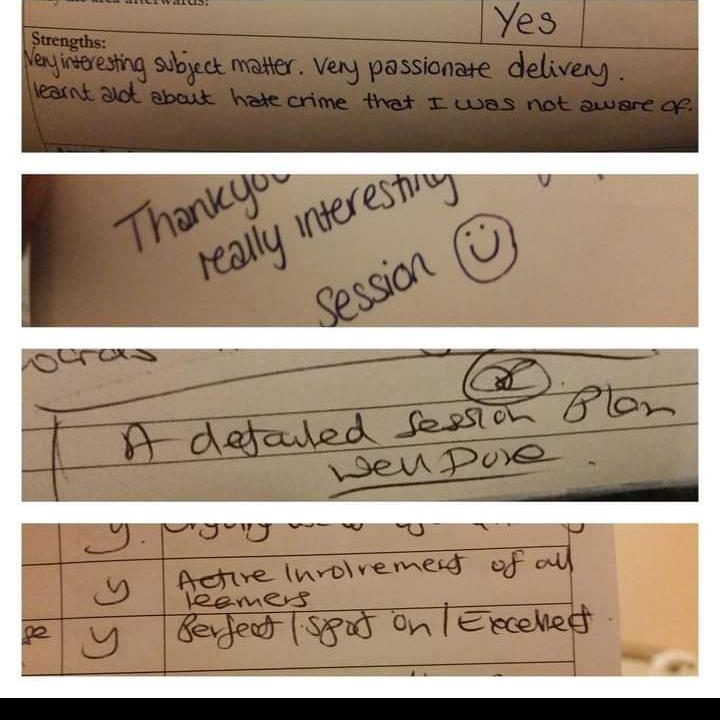 afterwards?
Yes
Strengths:
Very interesting subject matter. Very passionate delivery.
learnt alot about hate crime that I was not aware of.
Thankyou
really interesting
session
A detailed session Plan
Well Done.
y.
y Active Involvement of all
learners
y Perfect / Spot on / Excellent